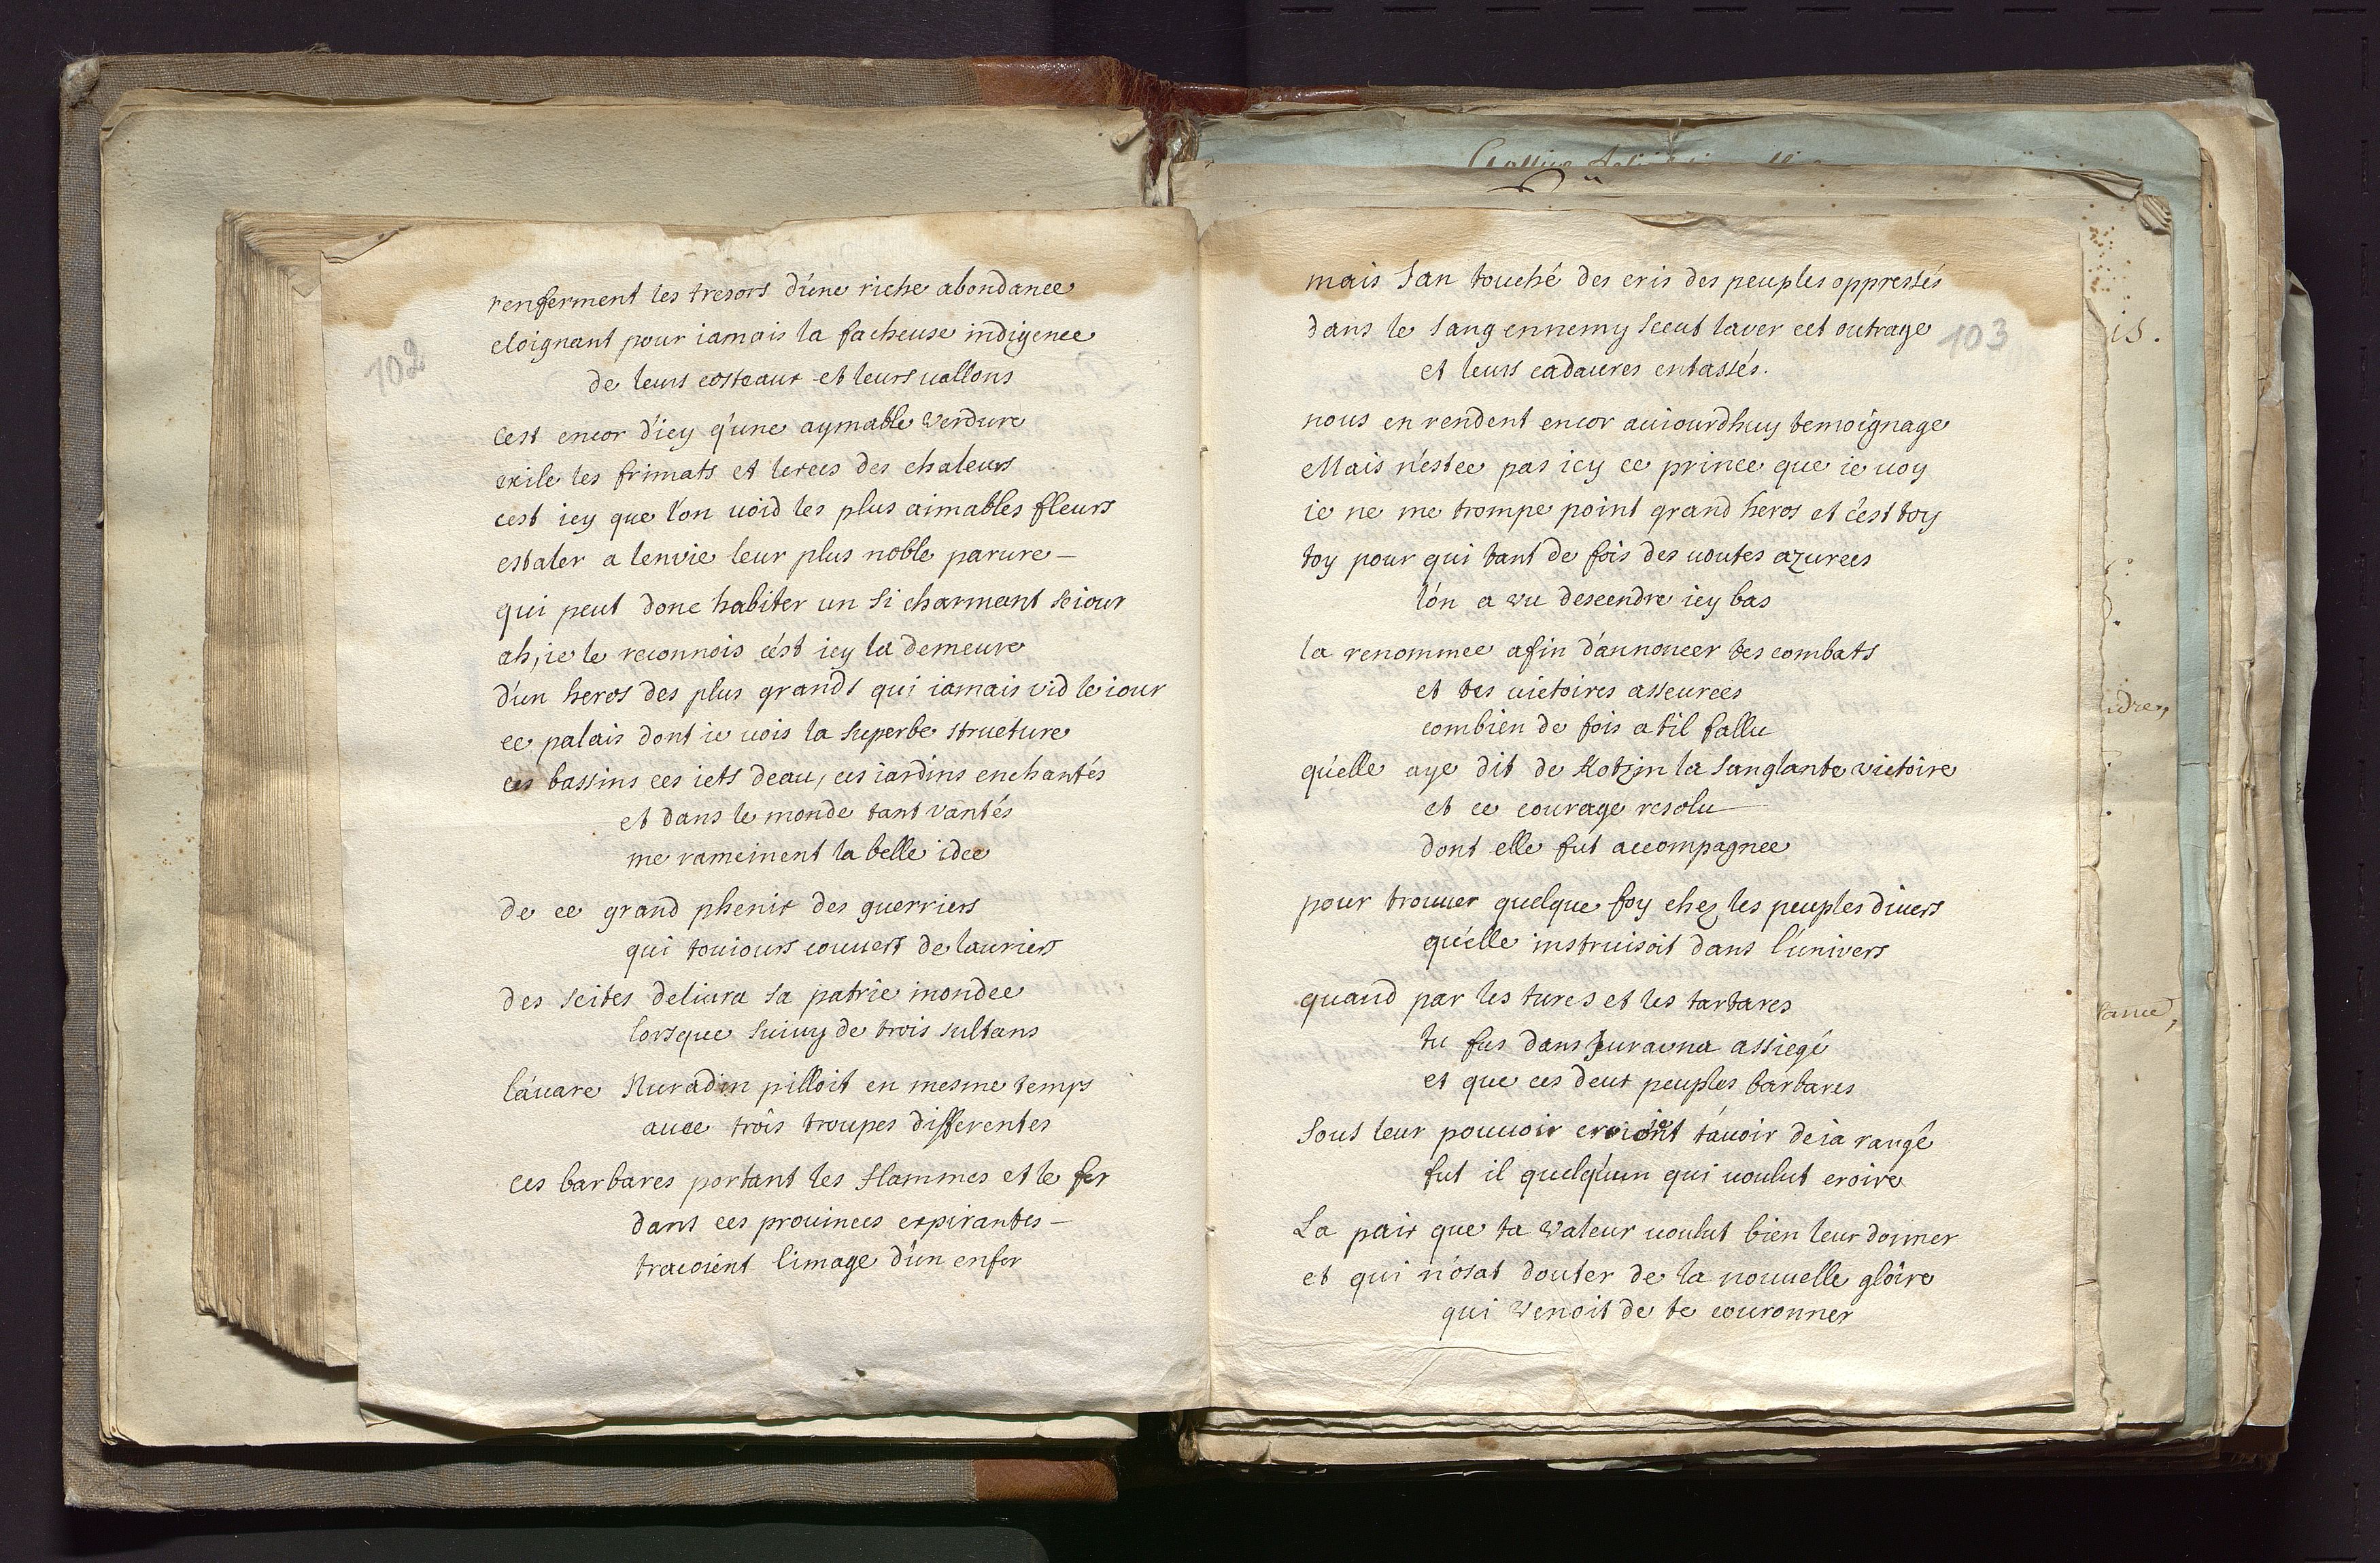 102
renferment les tresors d'une riche abondance
eloignant pour iamais la facheuse indigence
de leurs costeaux et leurs uallons
cest encor d'icy q'une aymable verdure
exile les frimats et lexces des chaleurs
cest icy que l'on uoid les plus aimables fleurs
estaler a lenvie leur plus noble parure –
qui peut donc habiter un si charmant seiour
ah, ie le reconnois c'est icy la demeure
d'un heros des plus grands qui iamais vid le iour
ce palais dont ie uois la superbe structure
ces bassins ces iets deau, ces iardins enchantés
et dans le monde tant vantés
me rameinent la belle idee
de ce grand phenix des guerriers
qui touiours couuert de lauriers
des scites deliura sa patrie inondee
lorsque suiuy de trois sultans
l'auare Nuradin pilloit en mesme temps
auec trois troupes differentes
ces barbares portant les flammes et le fer
dans ces prouinces expirantes –
tracoient l'image d'un enfer
103
mais Jan touché des cris des peuples oppressés
dans le sang ennemy sceut lauer cet outrage
et leurs cadaures entassés.
nous en rendent encor auiourdhuy temoignage
Mais n'estce pas icy ce prince que ie uoy
ie ne me trompe point grand heros et c'est toy
toy pour qui tant de fois des uoutes azurees
l'on a vu descendre icy bas
la renommee afin d'annoncer tes combats
et tes uictoires asseurees
combien de fois a til fallu
qu'elle aye dit de Kotzin la sanglante victoire
et ce courage resolu
dont elle fut accompagnee
pour trouuer quelque foy chez les peuples diuers
qu'elle instruisoit dans l'univers
quand par les turcs et les tartares
tu fus dans Zuravna assiegé
et que ces deux peuples barbares
sous leur pouuoir croioient t'auoir deia rangé
fut il quelq'un qui uoulut croire
La paix que ta valeur uoulut bien leur donner
et qui n'osat douter de la nouuelle gloire
qui venoit de te couronner
is.